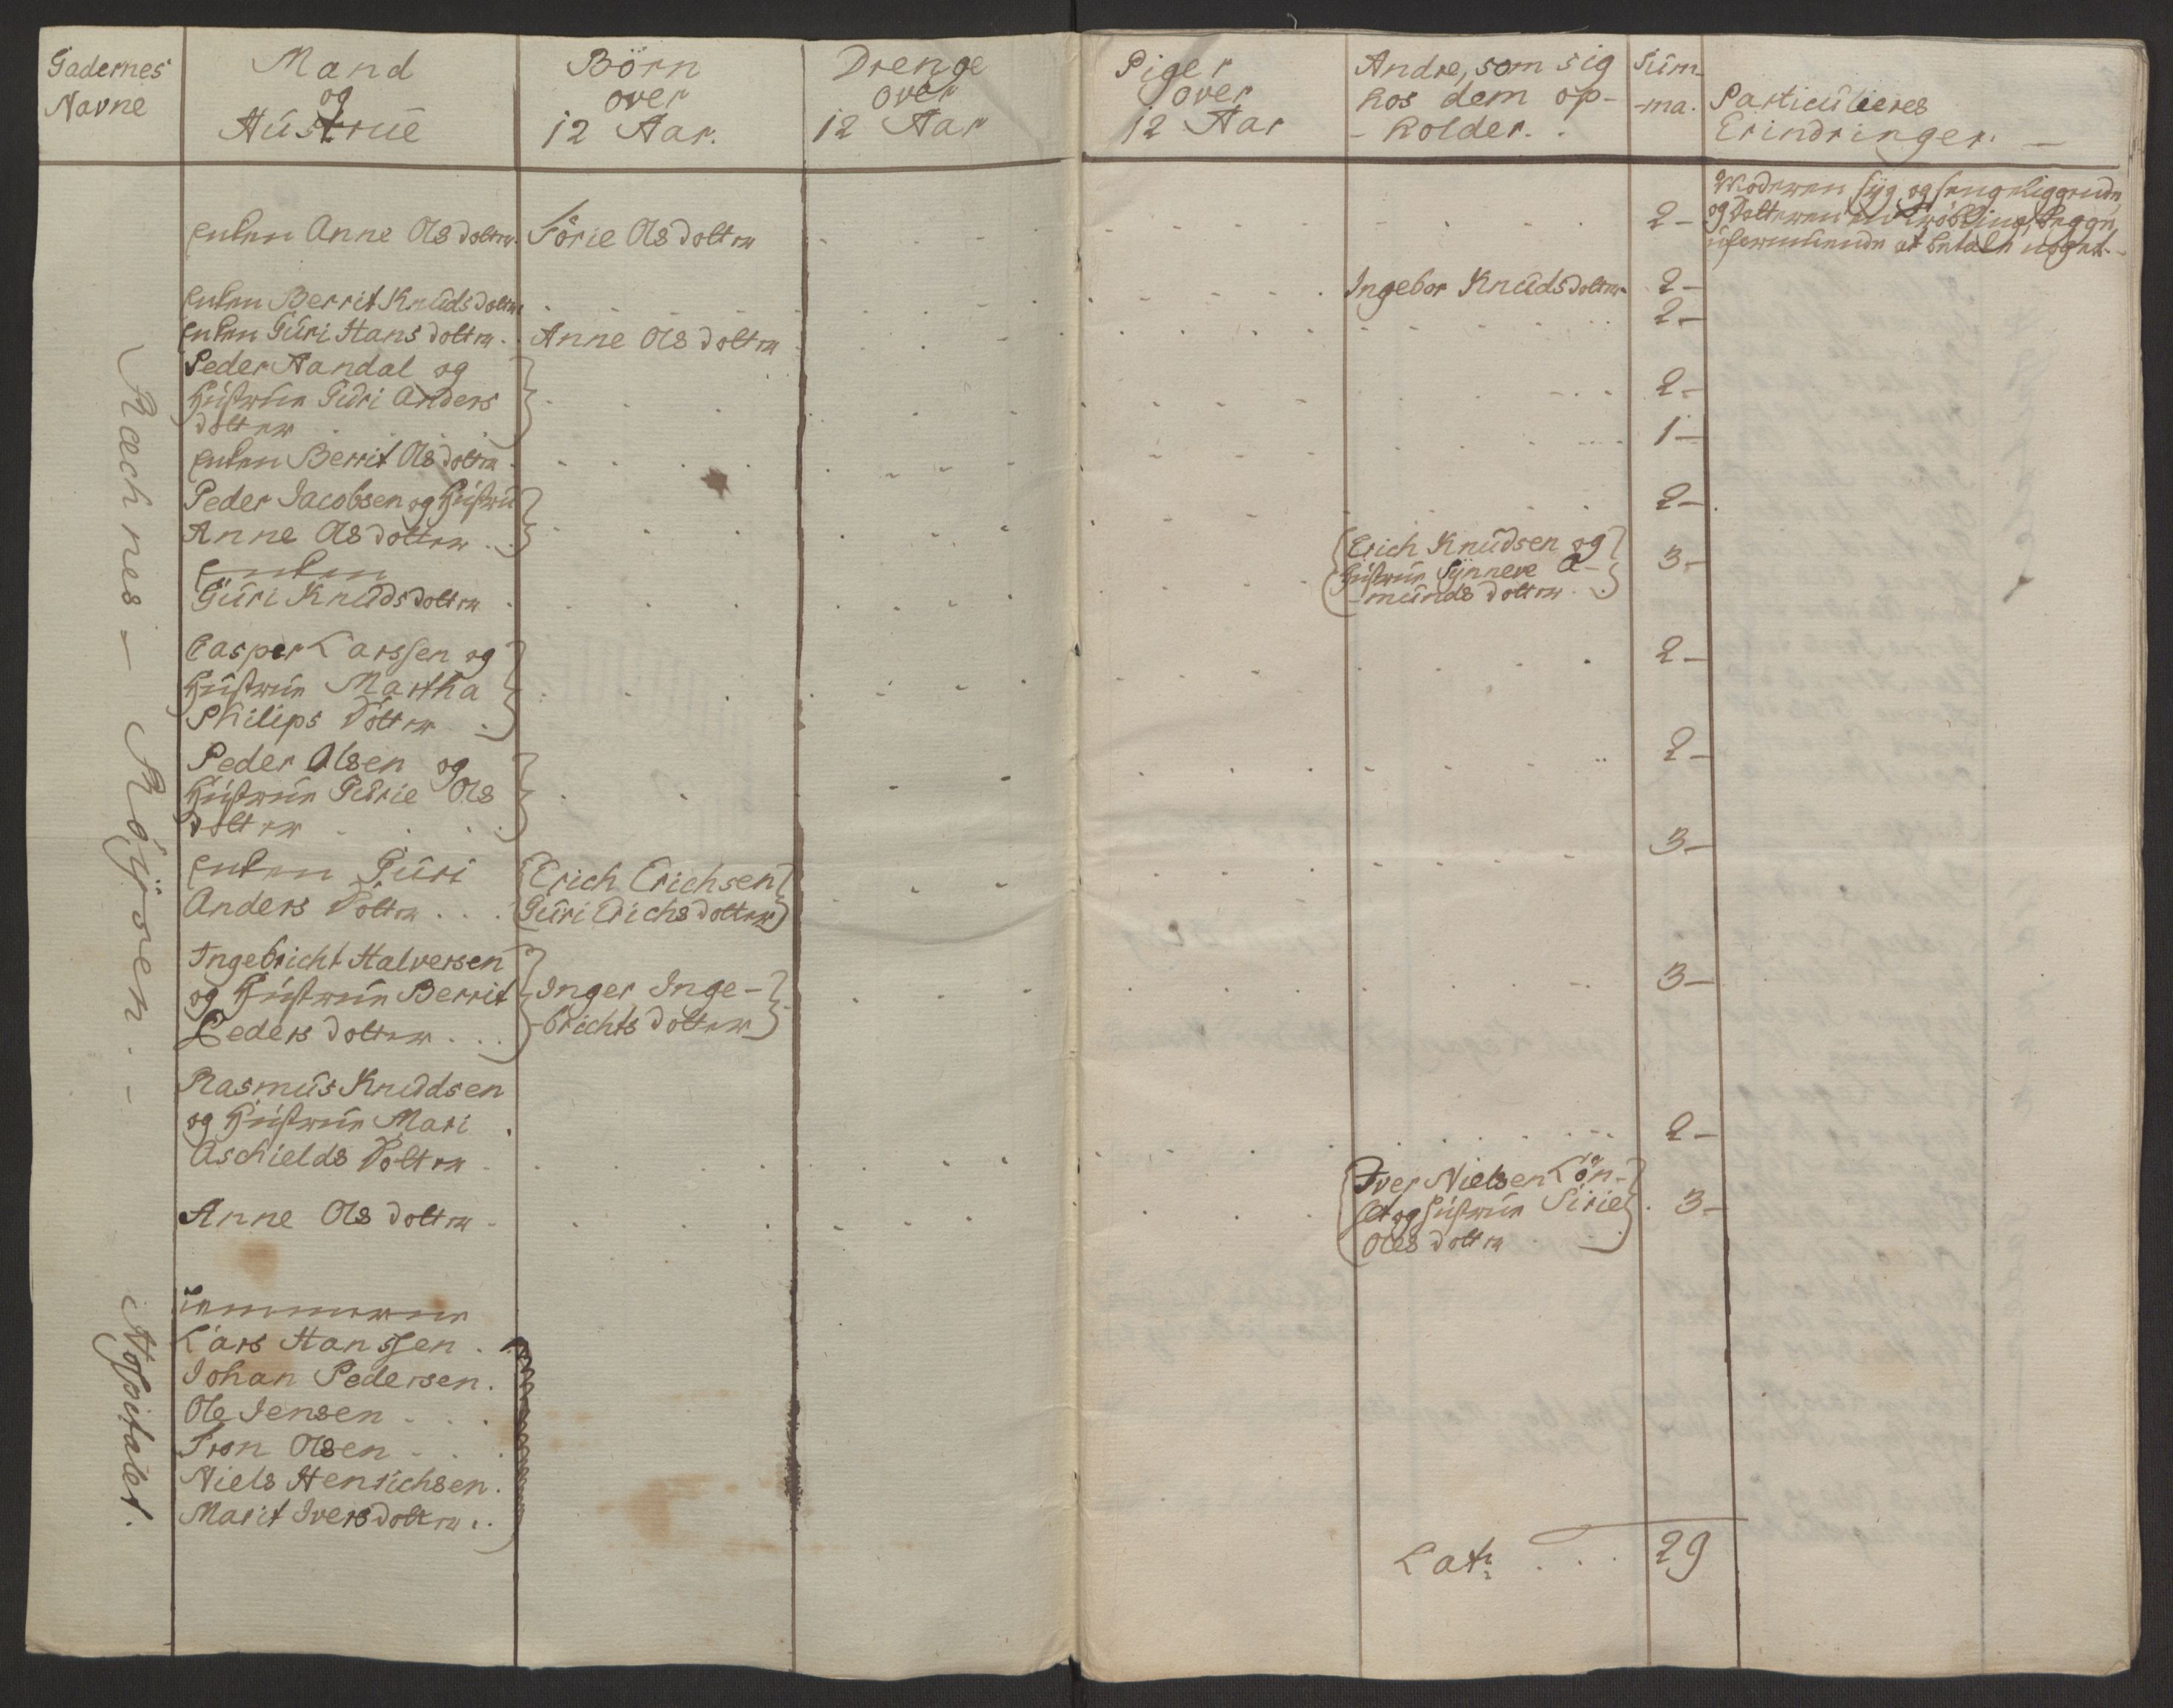 Gadernes
Navne
Mand
og
Hüstrüe
Börn
over
12 Aar.
Drenge
over
12 Aar
Piger
over
12 Aar
Andre, som sig
hos dem op-
-holder.
Süm-
-ma.
Particülieres
Erindringer. —
Ræchnes — Röÿsen. —
Enken Anne Ols dotter. Sörie Ols dotter 2—
Moderen syg og sengeliggende,
og Datteren en Krøbling, begge
uformuende at betale noget.
Enken Berrit Knüds dotter Ingebor Knüds dotter 2—
Enken Güri Hans dotter . Anne Ols dotter 2—
Peder Aandal og
Hüstrue Güri Anders 2—
dotter
Enken Berrit Ols dotter 1—
Peder Jacobsen og Hüstru 2—
Anne Ols dotter
Enken
Güri Knüds dotter
Erich Knüdsen og
Hüstrue Synneve A- 3—
-münds dotter
Casper Larssen og
Hüstrue Martha 2—
Philips Dotter
Peder Olsen og
Hüstrue Gürie Ols 2—
dotter
Enken Güri Erich Erichsen 3—
Anders Dotter . . . Güri Erichs dotter
Ingebricht Halversen
og Hüstrue Berrit Inger Inge- 3—
Peders dotter . . . -brichts dotter
Rasmüs Knüdsen
og Hüstrue Mari 2—
Aschields Dotter
Anne Ols dotter 3—
Iver Nielsen Lön-
set og Hüstrue Sirie
Oles dotter
Hospitalet.
Lars Hanssen .
Johan Pedersen.
Ole Jensen
Tron Olsen
Niels Henrichsen.
Marit Ivers dotter . .
Lat: . . . 29